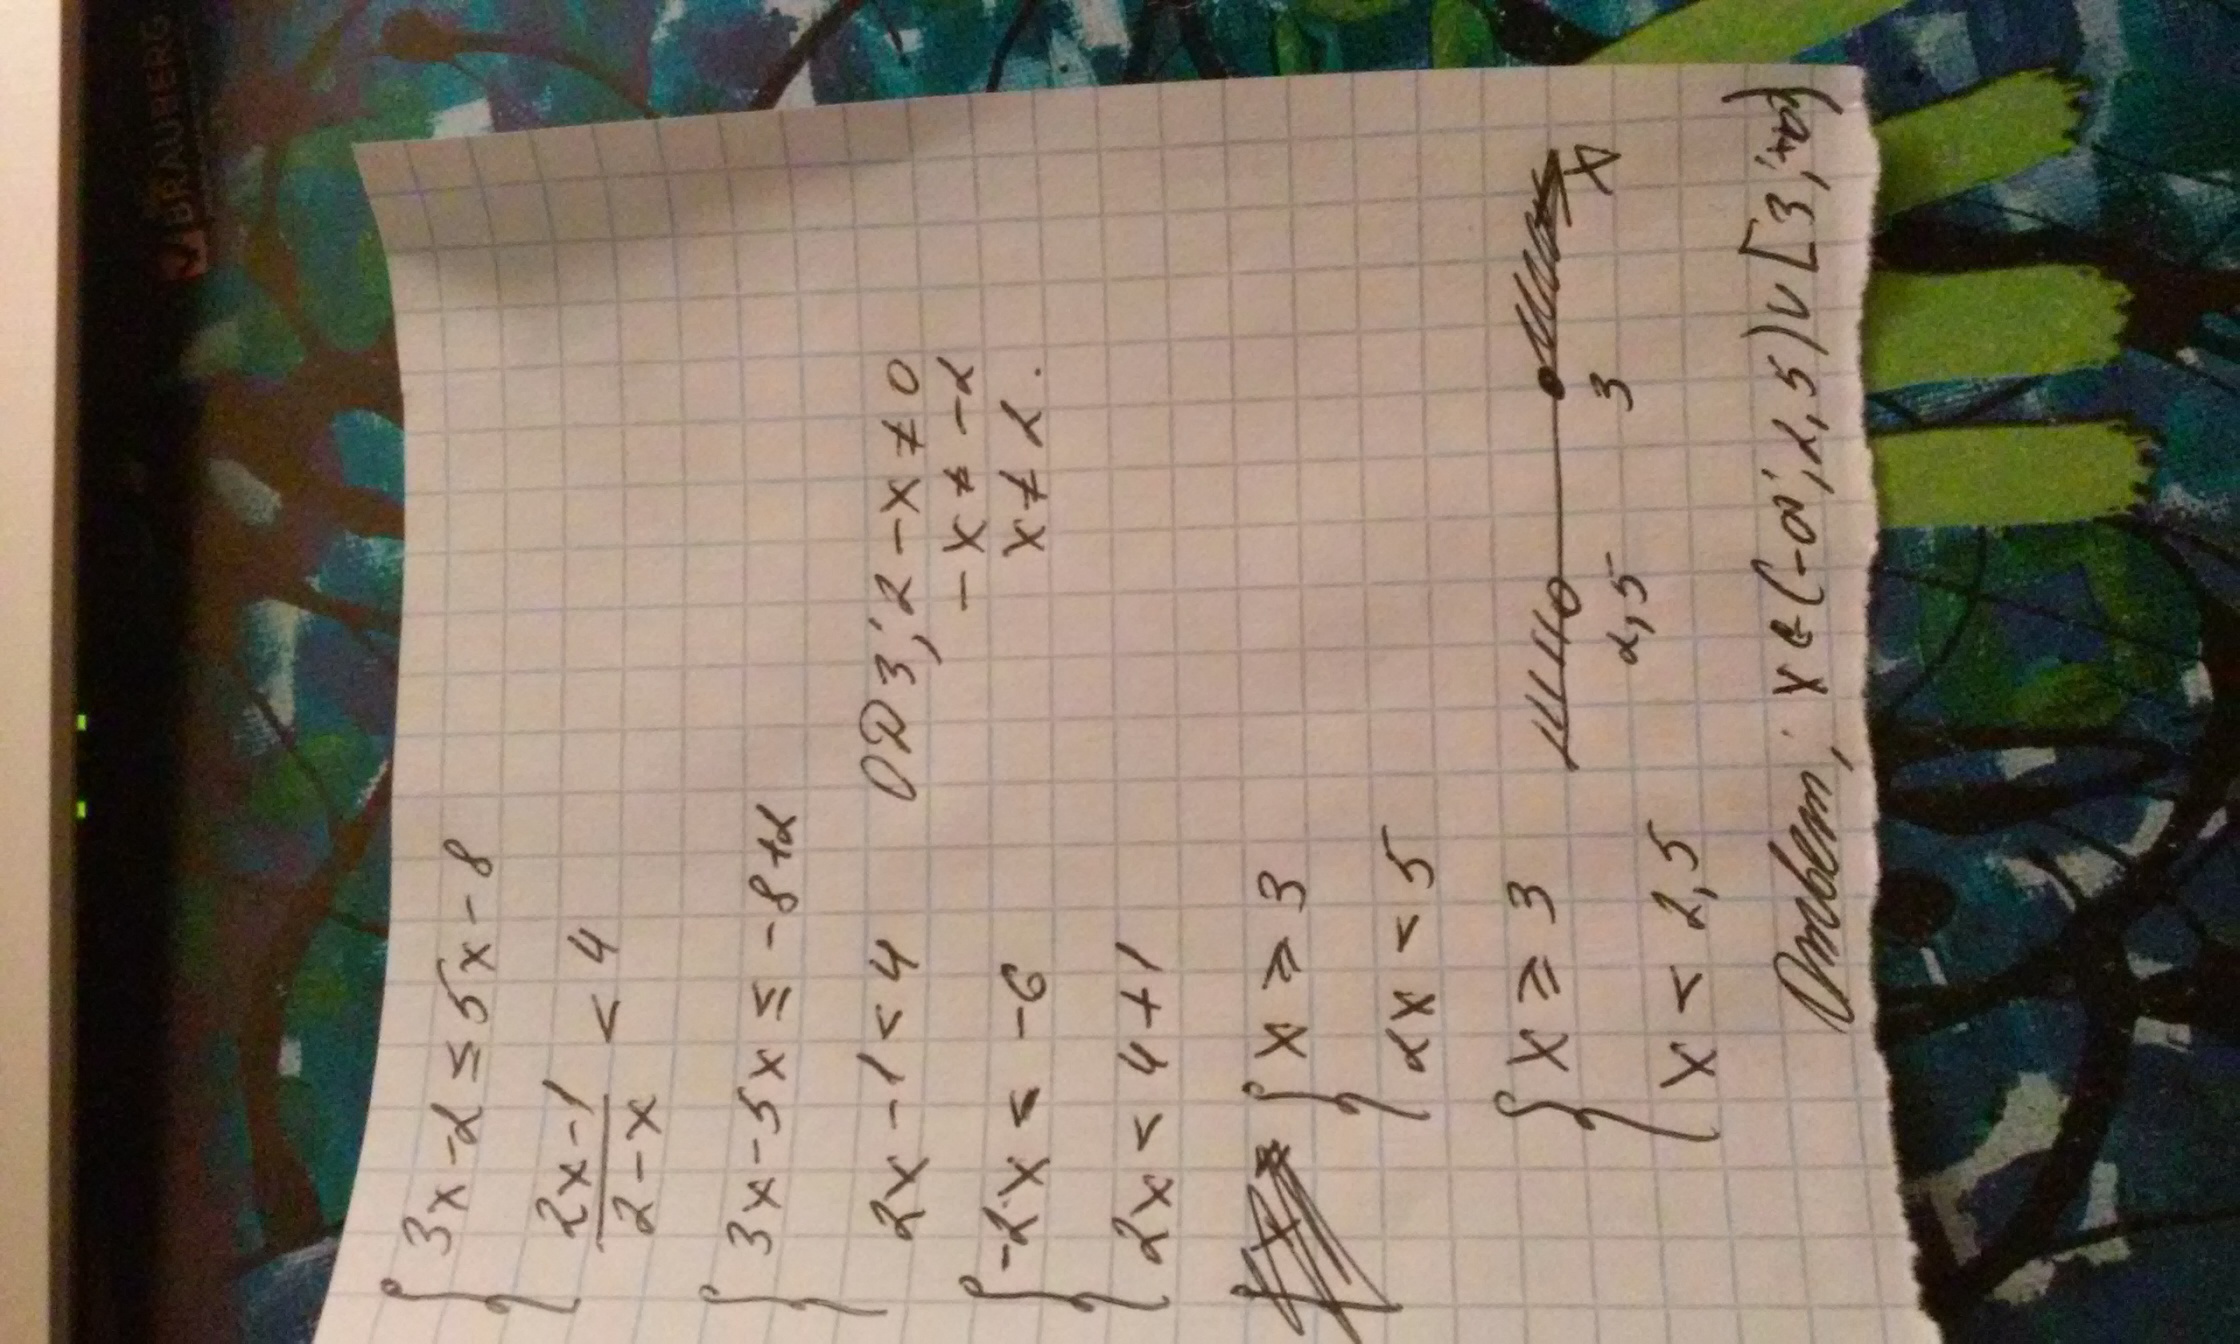 BRAUBERG
{ 3x-2≤5x-8
2x-1/2-x < 4
{ 3x-5x≤-8+2
2x-1<4
ОДЗ: 2-x≠0
-x≠-2
x≠2.
{ -2x≤-6
2x<4+1
{ x≥3
2x<5
{ x≥3
x<2,5
2,5 3 x
Ответ: x∈(-∞; 2,5)∪[3; +∞)